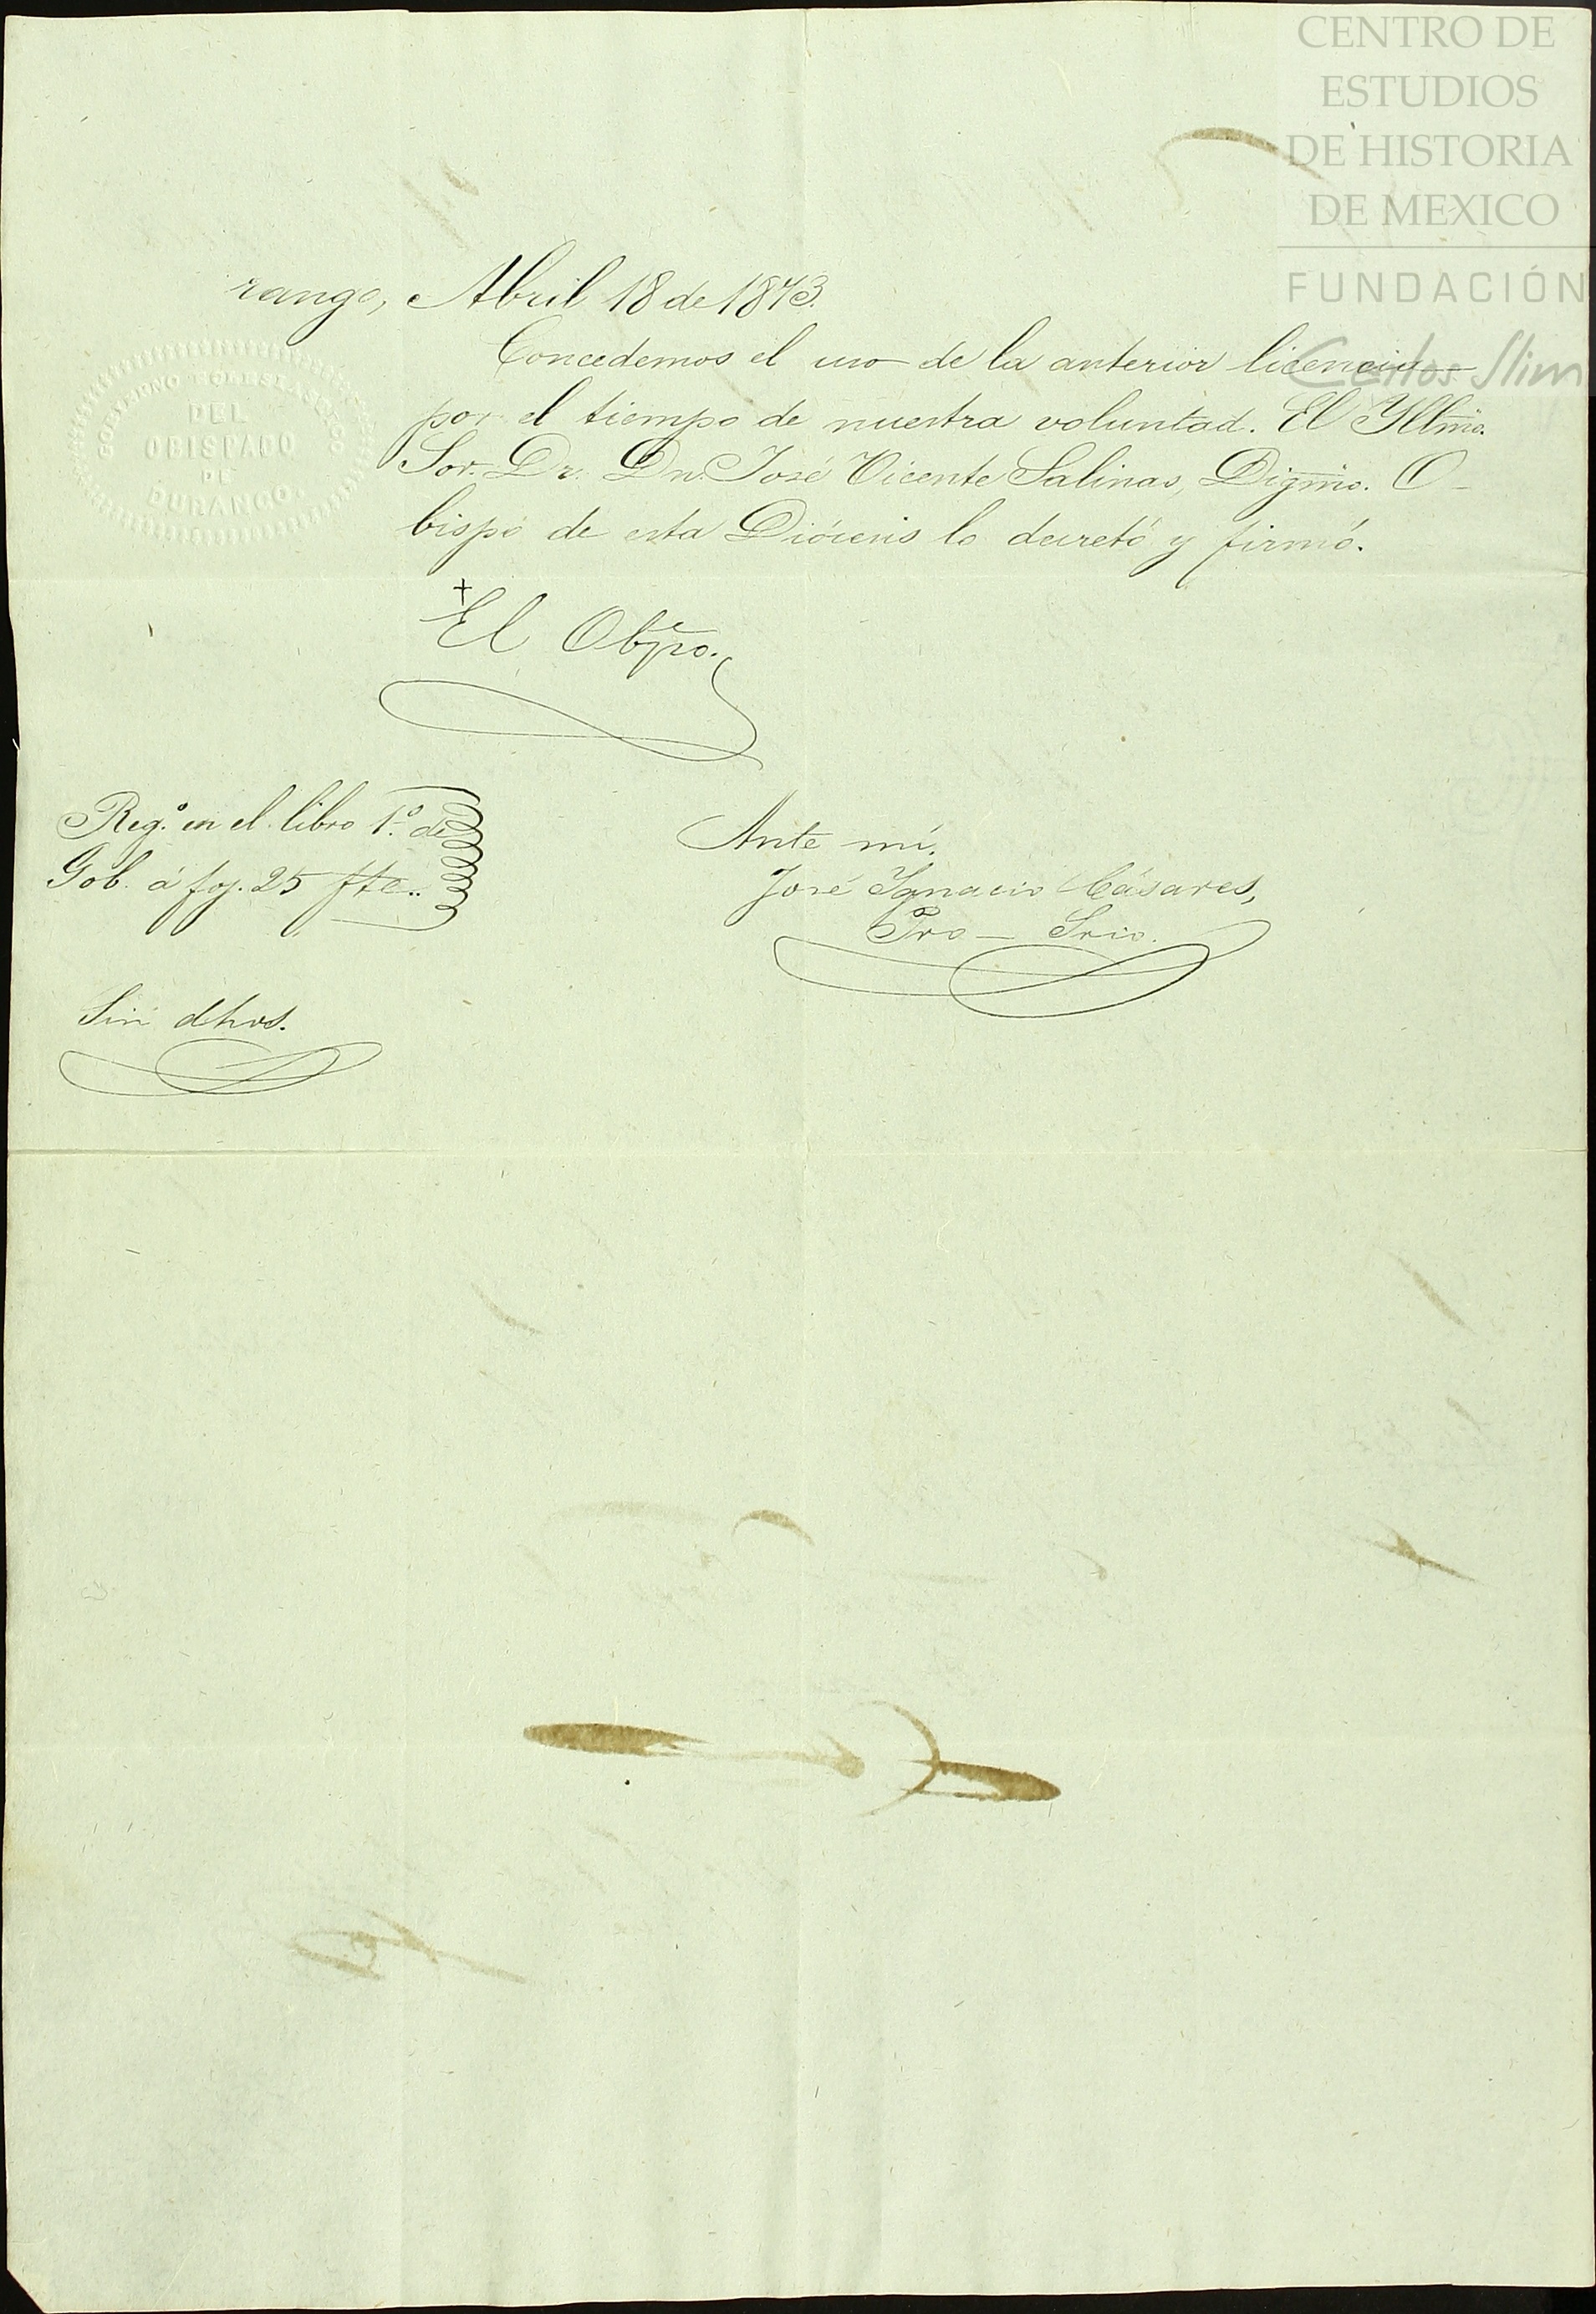 CENTRO DE
ESTUDIOS
DE HISTORIA
DE MEXICO
FUNDACIÓN
Carlos Slim
rango, Abril 18 de 1873.
Concedemos el uso de la anterior licencia
por el tiempo de nuestra voluntad. El Yllmo.
Sor. Dr. Dn. José Vicente Salinas, Digmo. O-
bispo de esta Diócesis lo decretó y firmó.
GOBIERNO ECLESIASTICO
DEL
OBISPADO
DE
DURANGO.
+
El Obpo.
Reg.o en el libro 1.o de
Gob. á foj. 25 fte..
Ante mí.
José Ygnacio Cásares,
Pro-Srio.
Sin dhos.